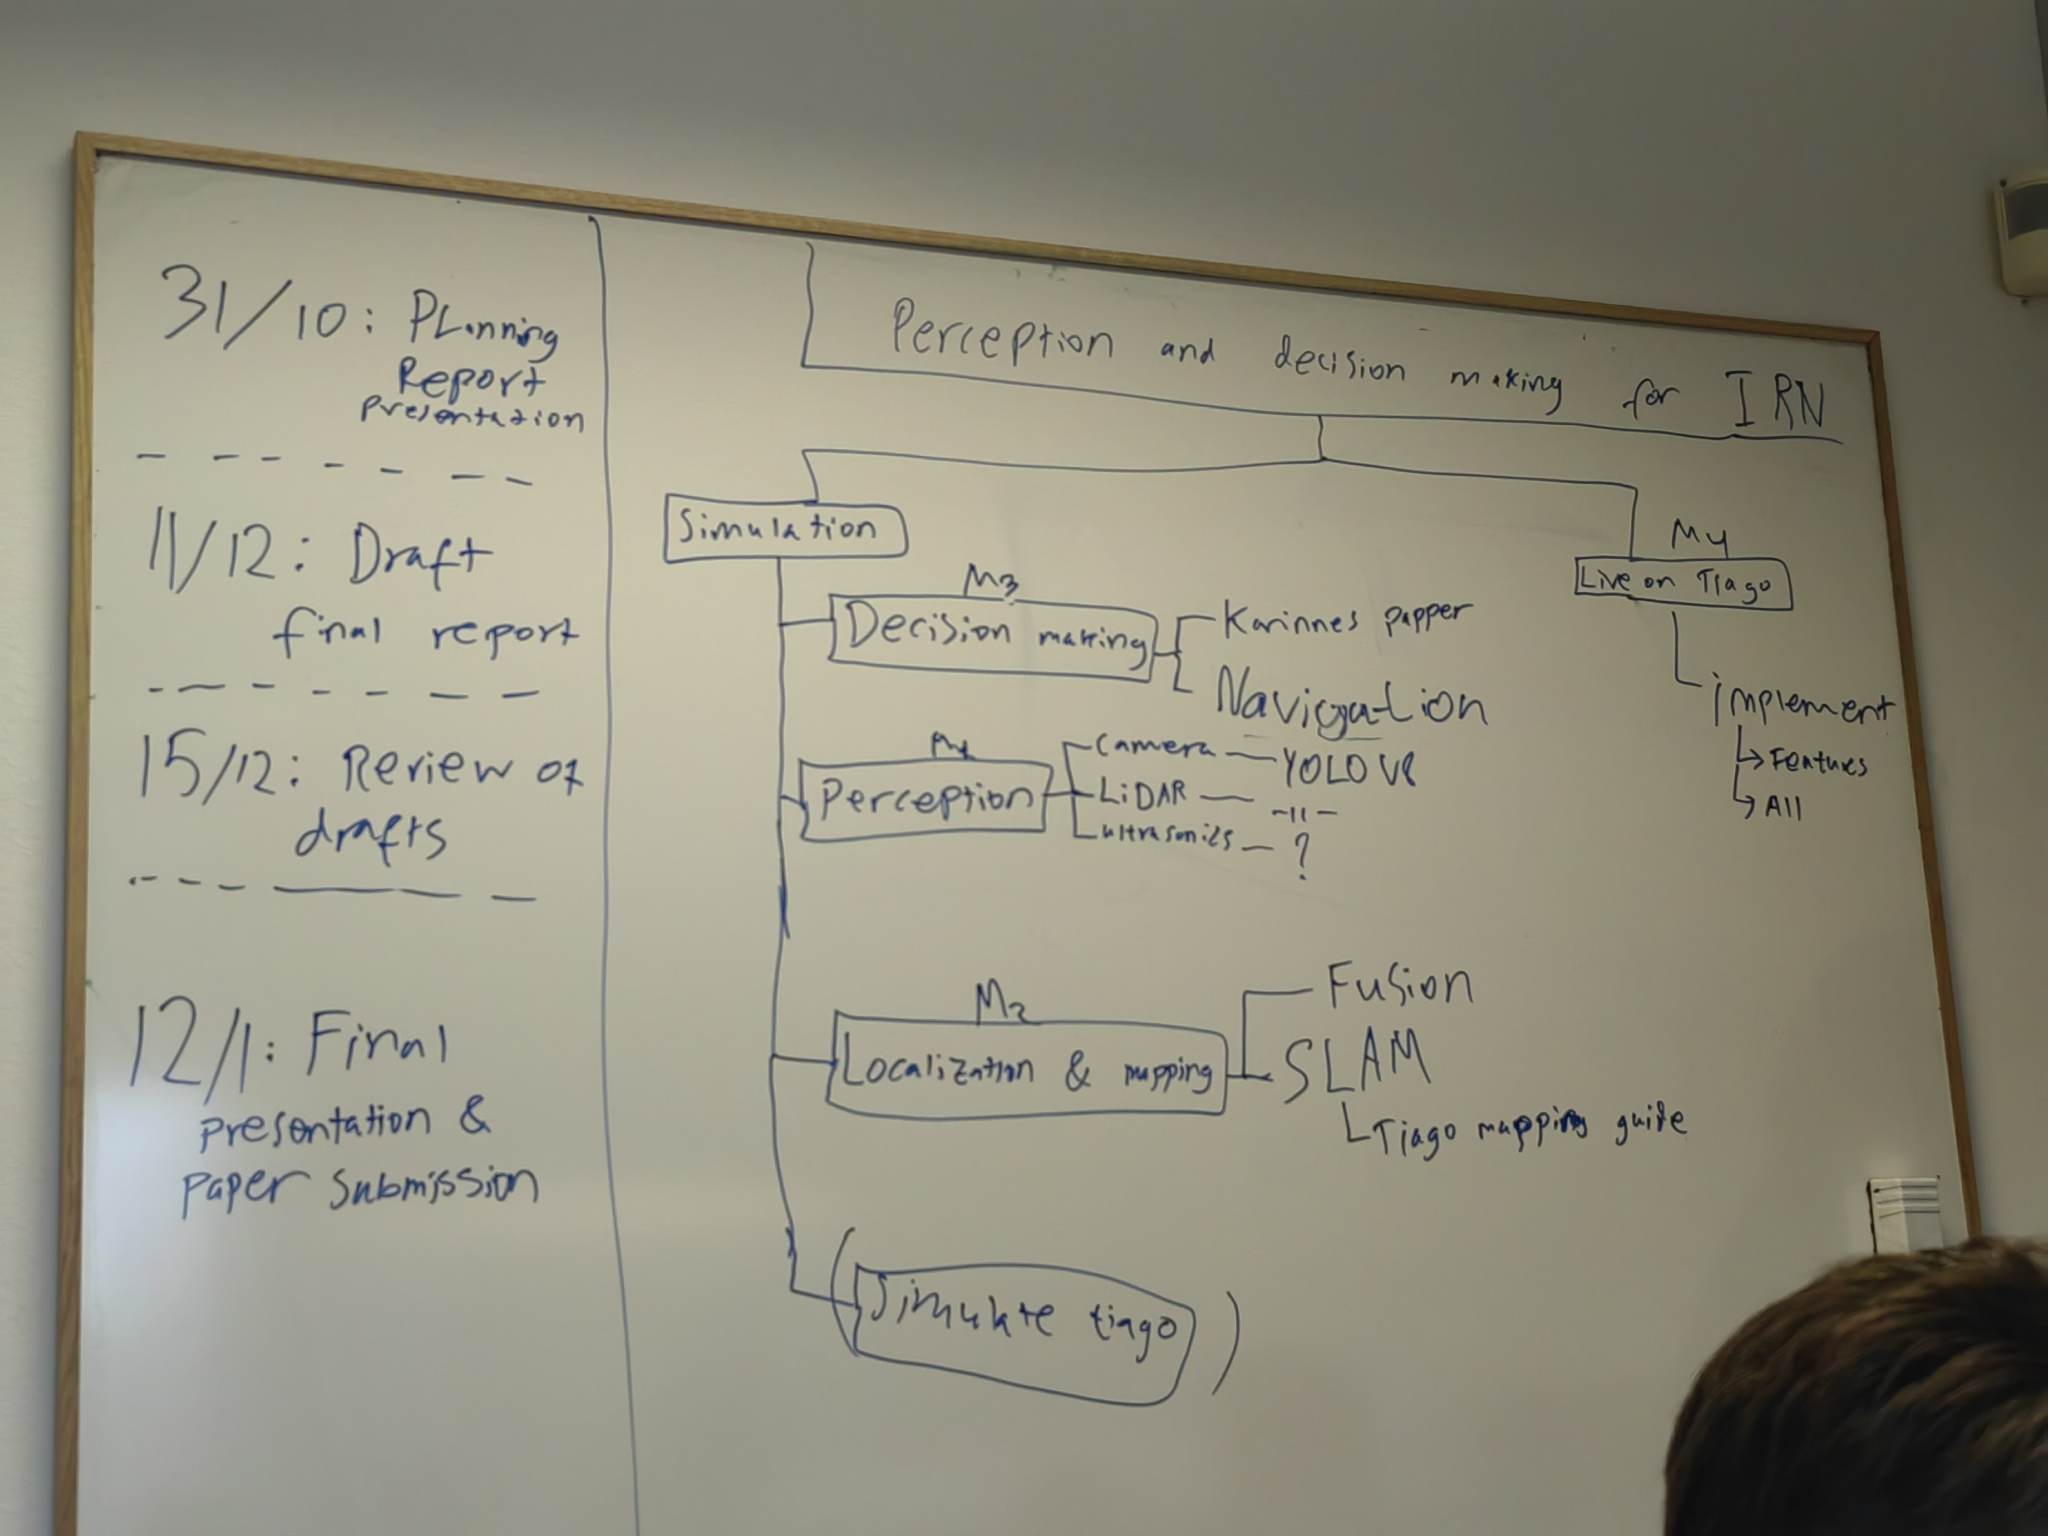 31/10: Planning
Report
presentation
11/12: Draft
final report
15/12: Review of
drafts
12/1: Final
presentation &
paper submission
Perception and decision making for IRN
Simulation
M3
Decision making
Karinnes papper
Navigation
M1
Perception
Camera — YOLO V8
LiDAR — -11-
ultrasonics — ?
M2
Localization & mapping
Fusion
SLAM
Tiago mapping guide
(Simulate tiago)
M4
Live on Tiago
implement
Features
All